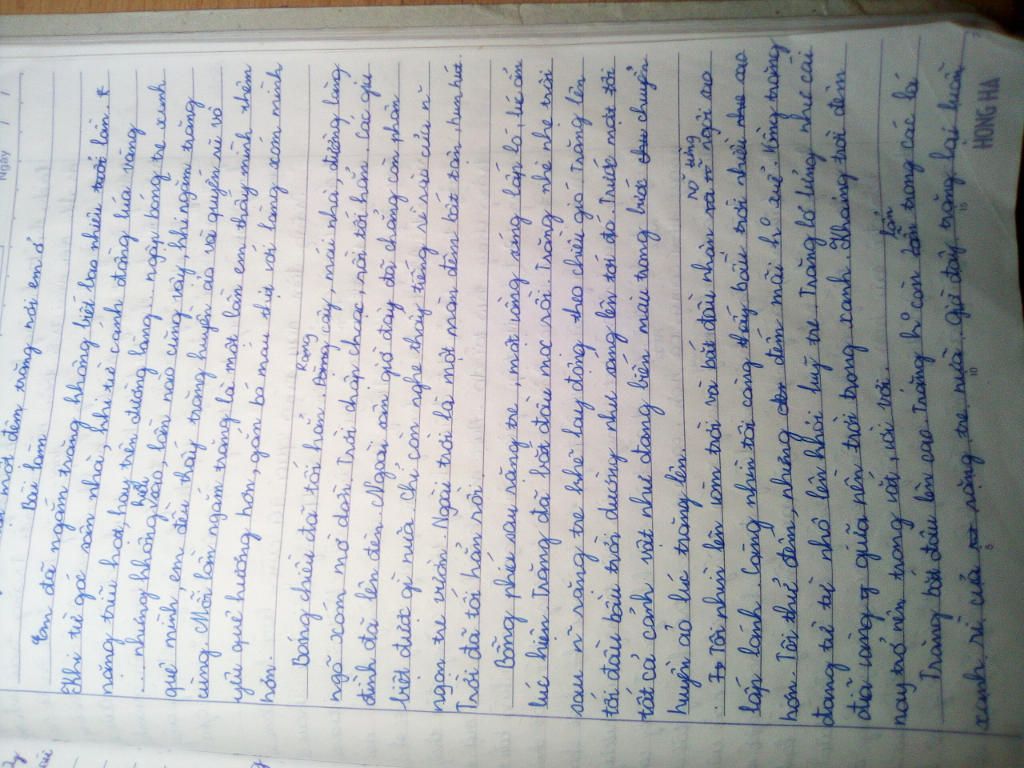 một đêm trăng nơi em ở
Bài làm
Em đã ngắm trăng không biết bao nhiêu lần.
Khi từ góc sân nhà, khi từ cánh đồng lúa vàng
nặng trĩu hạt, hay trên đường làng ngập bóng tre xanh
những không hiểu vào, lần nào cũng vậy, khi ngắm trăng
quê mình, em đều thấy trăng huyền ảo và quyến rũ vô
cùng. Mỗi lần ngắm trăng là một lần em thấy mình thêm
yêu quê hương hơn, gắn bó máu thịt với làng xóm mình
hơn.
Bóng chiều đã tối hẳn. Rặng cây, mái nhà, đường làng
ngõ xóm mờ dần. Trời chập choạc, rồi tối hẳn. Các gia
đình đã lên đèn. Ngoài sân giờ đây đã chẳng còn phân
biệt được gì nữa chỉ còn nghe thấy tiếng rì rào của n
ngọn tre vườn. Ngoài trời là một màn đêm bất tận, hun hút.
Trời đã tối hẳn rồi.
Bỗng phía sau rặng tre, một vòng sáng lấp ló, lúc ẩn
lúc hiện. Trăng đã bắt đầu mọc rồi. Trăng nhè nhẹ trôi
sau n rặng tre khẽ lay động theo chiều gió. Trăng lên
tới đâu bầu trời dường như sáng lên tới đó. Trước mắt tôi
tất cả cảnh vật như đang biến màu trong biết chuyện
huyền ảo lúc trăng lên.
Tôi nhìn lên vòm trời và bắt đầu nhận ra n ngôi sao
lấp lánh. Càng nhìn tôi càng thấy bầu trời nhiều sao
hơn. Tôi thử đếm, nhưng đếm mãi k0 xuể. Vầng trăng
đang từ từ nhô lên khỏi luỹ tre. Trăng lơ lửng như cái
đĩa vàng giữa nền trời trong xanh. Khoảng trời đêm
nay trở nên trong vắt, vời vợi.
Trăng bắt đầu lên cao. Trăng k0 còn lẩn trong các lá
xanh rì của rặng tre nữa, giờ đây trăng lại luồn
HONG HA
Ngày
5
10
15